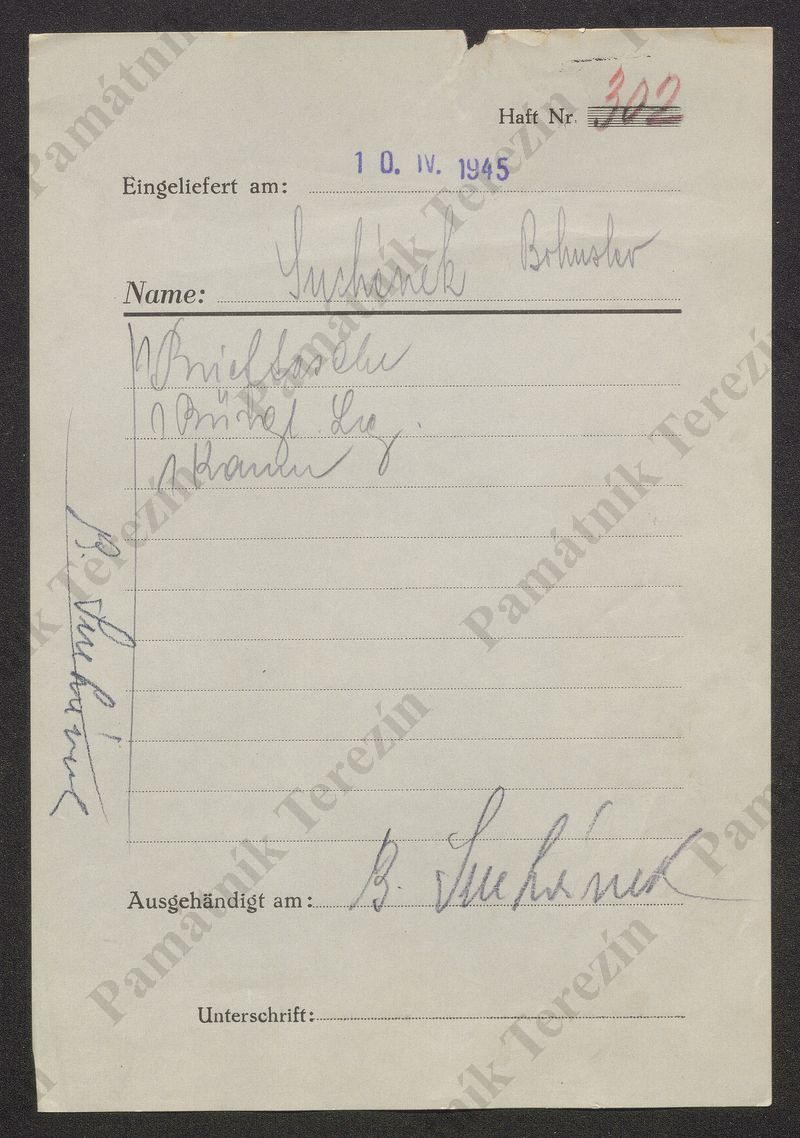 Haft Nr. 302
Eingeliefert am: 10. IV. 1945
Name: Suchánek Bohuslav
1 Brieftasche
1 Bürgl. Leg.
1 Kamm
B. Suchánek
Ausgehändigt am: B. Suchánek
Unterschrift:
Památník Terezín